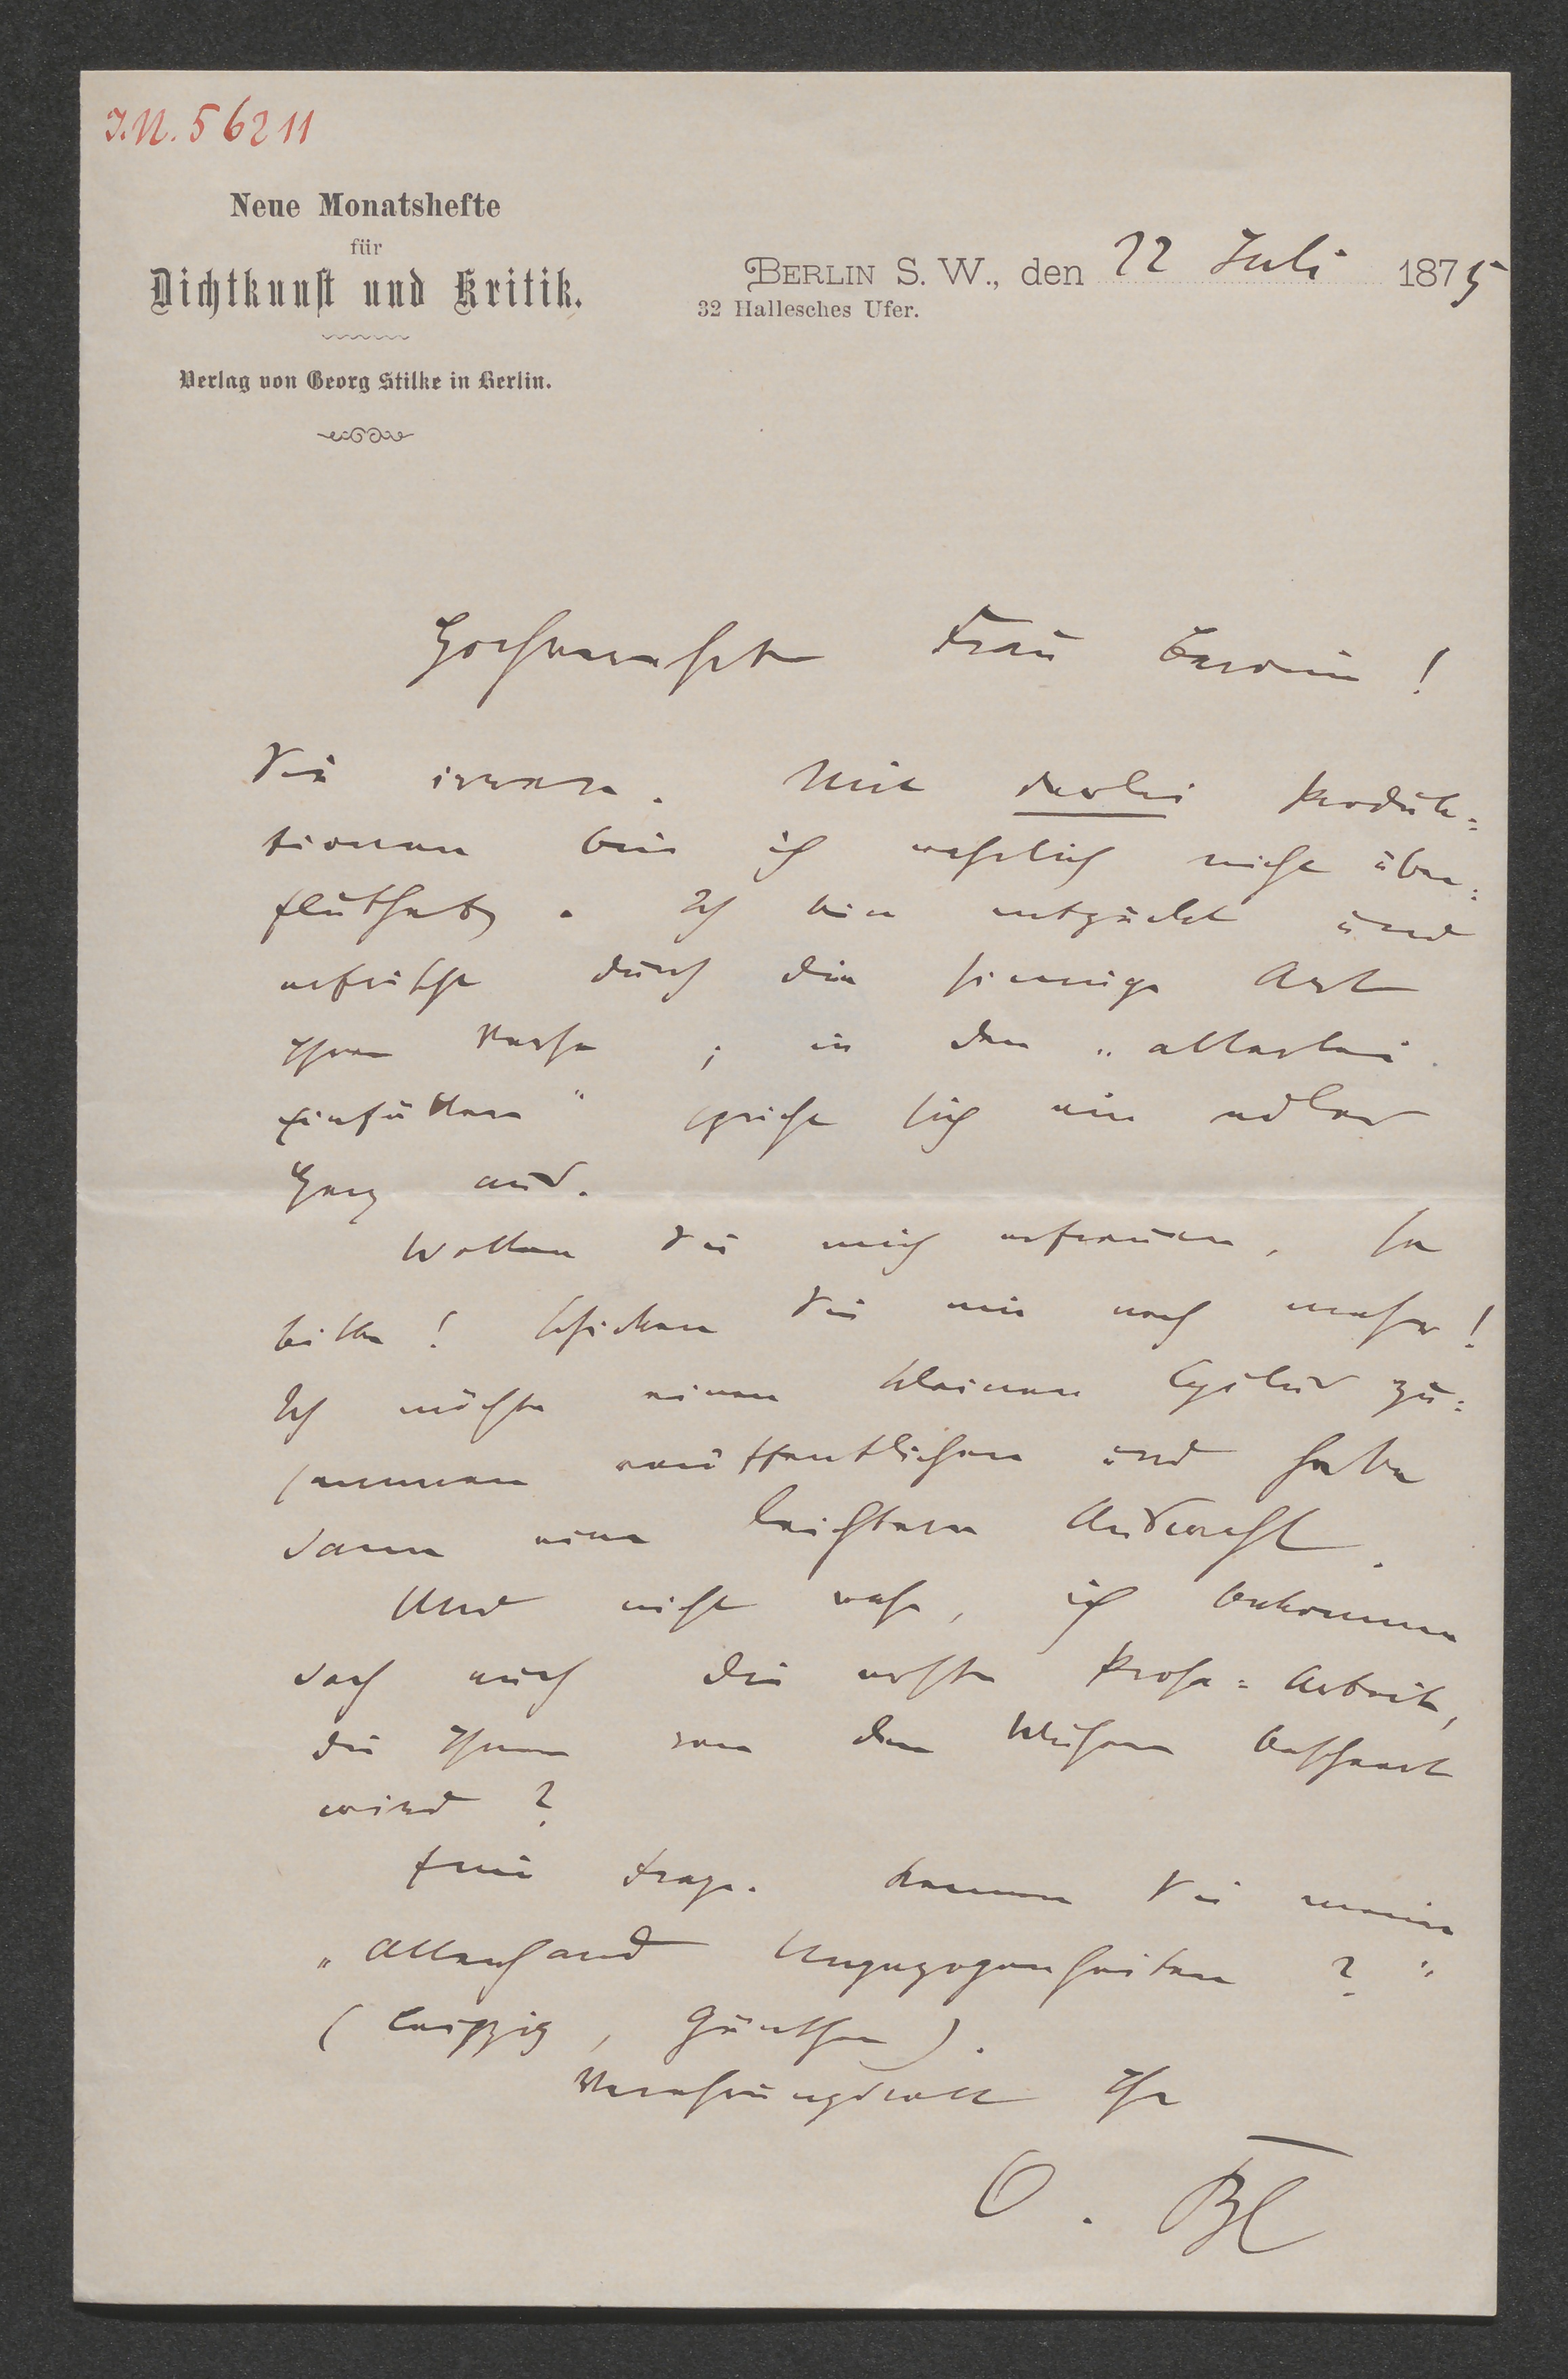 J.N. 56211
Neue Monatshefte
für
Dichtkunst und Kritik.
Verlag von Georg Stilke in Berlin.
BERLIN S. W., den 22 Juli 1875
32 Hallesches Ufer.
Hochverehrte Frau Baronin!
Sie irren. Mit derlei Produk=
tionen bin ich wahrlich nicht über=
fluthet. Ich bin entzückt und
erfrischt durch die sinnige Art
Ihrer Verse; in den „allerlei
Einfällen" spricht sich ein edles
Herz aus.
Wollen Sie mich erfreuen, so
bitte! schicken Sie mir noch mehr!
Ich möchte einen kleinen Cyclus zu=
sammen veröffentlichen und habe
dann eine leichtere Auswahl.
Und nicht wahr, ich bekomme
doch auch die erste Prosa=Arbeit,
die Ihnen von den Musen bescheert
wird?
Eine Frage. Kennen Sie meine
„Allerhand Ungezogenheiten?"
(Leipzig, Günther).
Verehrungsvoll Ihr
O. Bl